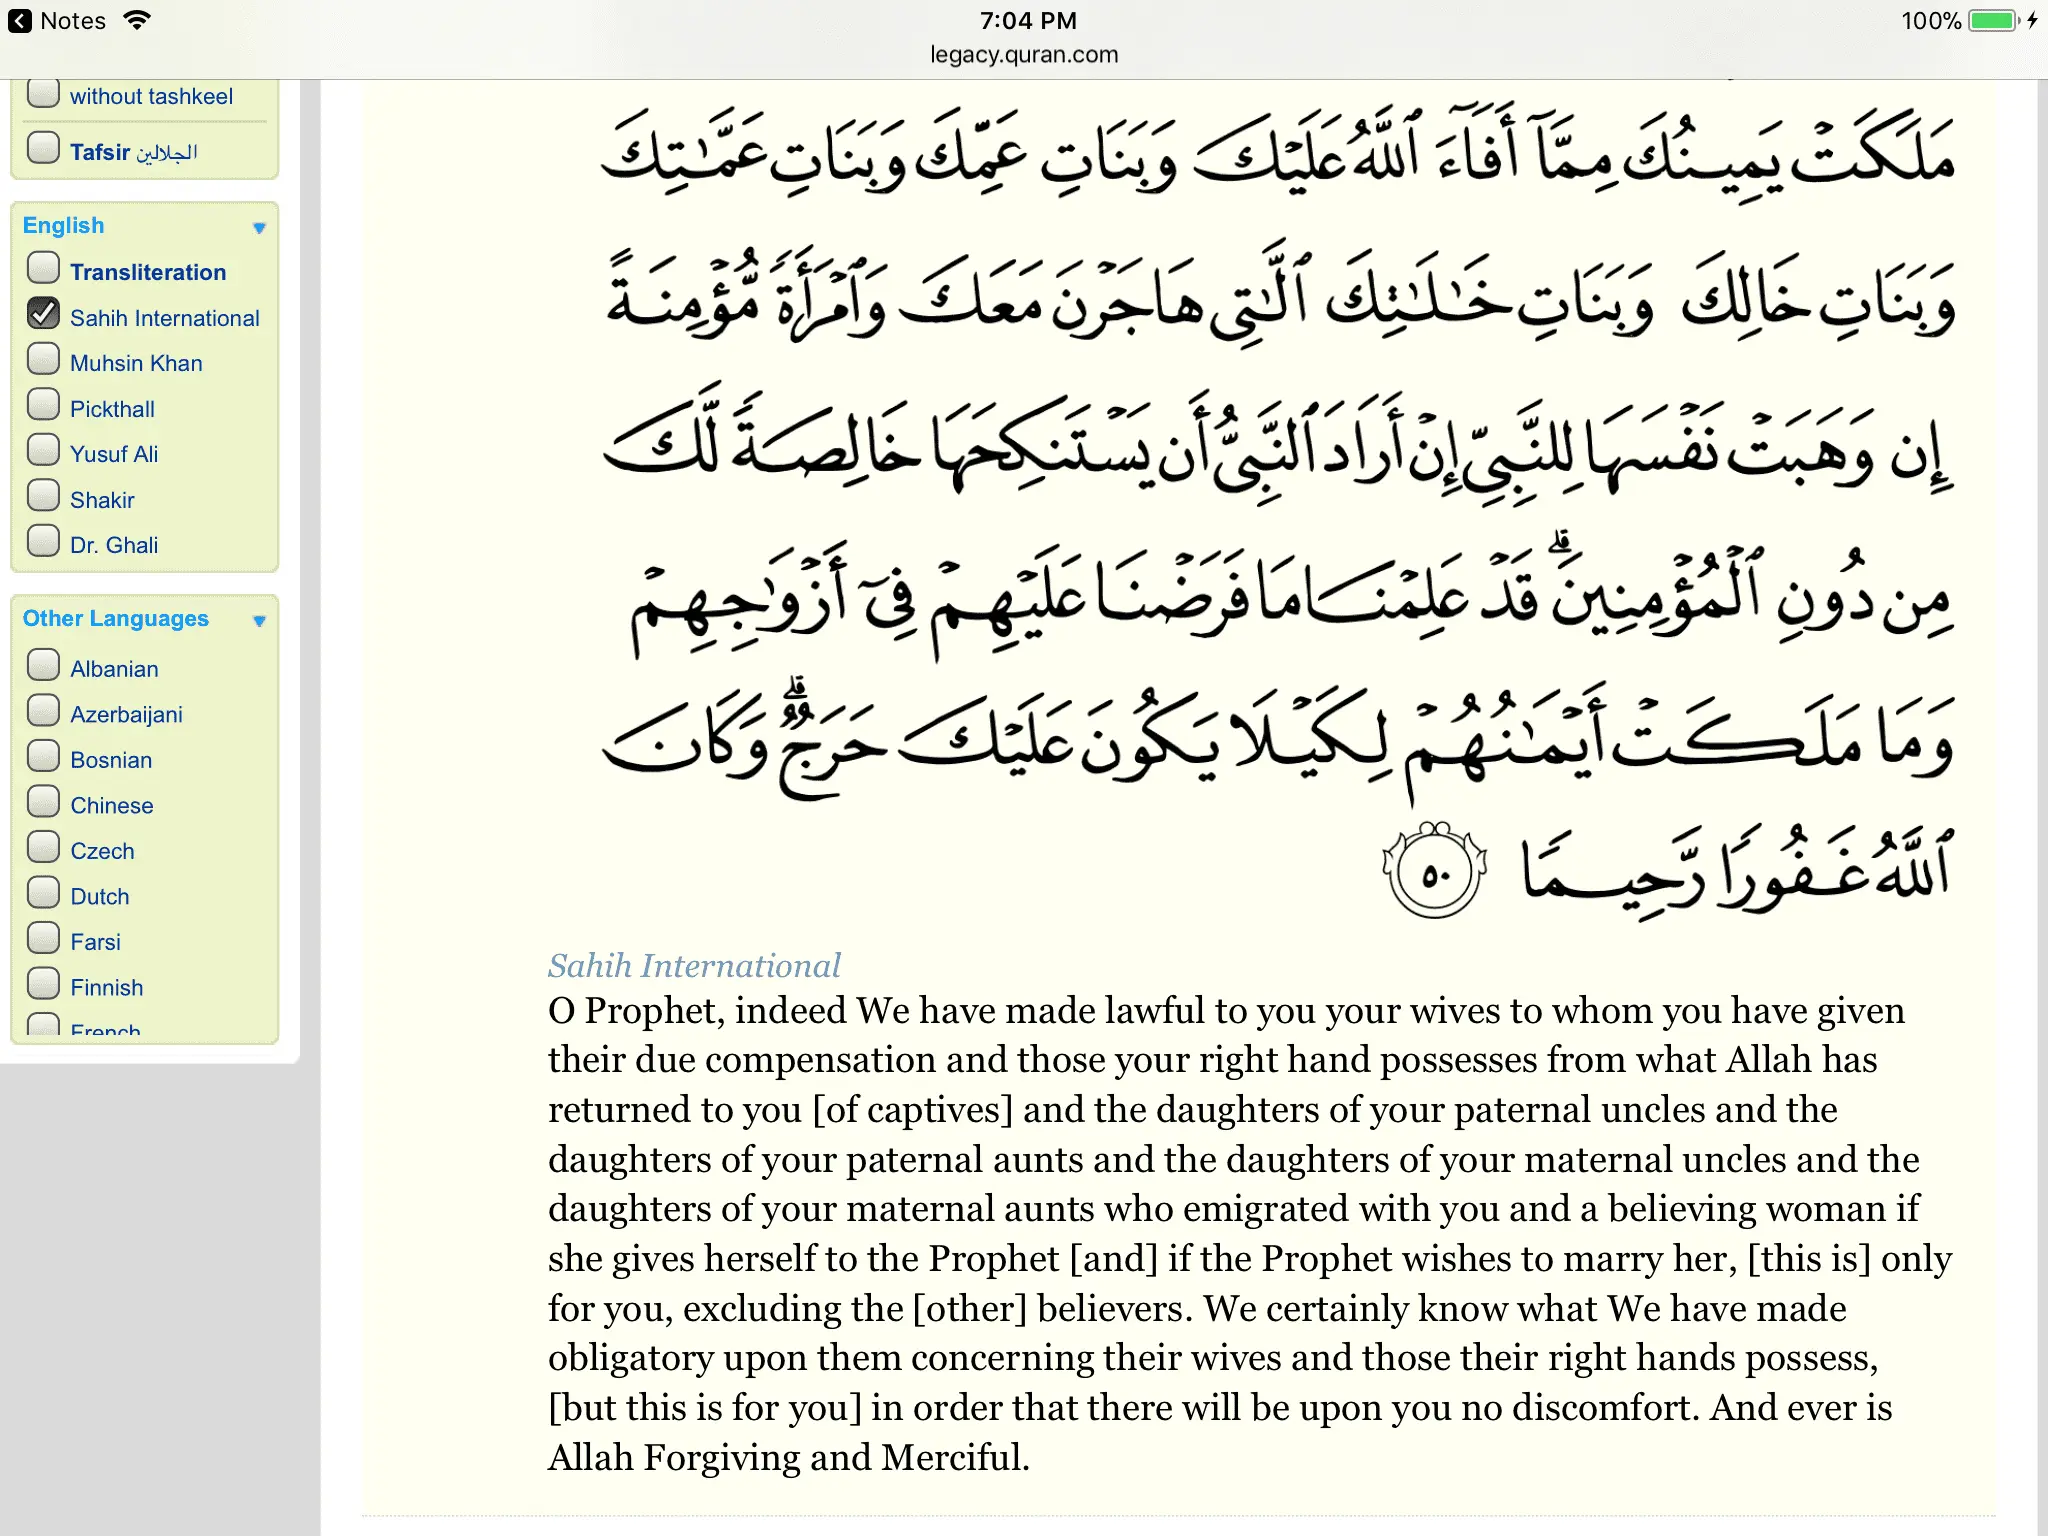 Notes
7:04 PM
100%
legacy.quran.com
without tashkeel
Tafsir الجلالين
English
Transliteration
Sahih International
Muhsin Khan
Pickthall
Yusuf Ali
Shakir
Dr. Ghali
Other Languages
Albanian
Azerbaijani
Bosnian
Chinese
Czech
Dutch
Farsi
Finnish
French
مَلَكَتْ يَمِينُكَ مِمَّآ أَفَآءَ ٱللَّهُ عَلَيْكَ وَبَنَاتِ عَمِّكَ وَبَنَاتِ عَمَّـٰتِكَ
وَبَنَاتِ خَالِكَ وَبَنَاتِ خَـٰلَـٰتِكَ ٱلَّـٰتِى هَاجَرْنَ مَعَكَ وَٱمْرَأَةً مُّؤْمِنَةً
إِن وَهَبَتْ نَفْسَهَا لِلنَّبِىِّ إِنْ أَرَادَ ٱلنَّبِىُّ أَن يَسْتَنكِحَهَا خَالِصَةً لَّكَ
مِن دُونِ ٱلْمُؤْمِنِينَ ۗ قَدْ عَلِمْنَا مَا فَرَضْنَا عَلَيْهِمْ فِىٓ أَزْوَٰجِهِمْ
وَمَا مَلَكَتْ أَيْمَـٰنُهُمْ لِكَيْلَا يَكُونَ عَلَيْكَ حَرَجٌ ۗ وَكَانَ
ٱللَّهُ غَفُورًا رَّحِيمًا ٥٠
Sahih International
O Prophet, indeed We have made lawful to you your wives to whom you have given
their due compensation and those your right hand possesses from what Allah has
returned to you [of captives] and the daughters of your paternal uncles and the
daughters of your paternal aunts and the daughters of your maternal uncles and the
daughters of your maternal aunts who emigrated with you and a believing woman if
she gives herself to the Prophet [and] if the Prophet wishes to marry her, [this is] only
for you, excluding the [other] believers. We certainly know what We have made
obligatory upon them concerning their wives and those their right hands possess,
[but this is for you] in order that there will be upon you no discomfort. And ever is
Allah Forgiving and Merciful.